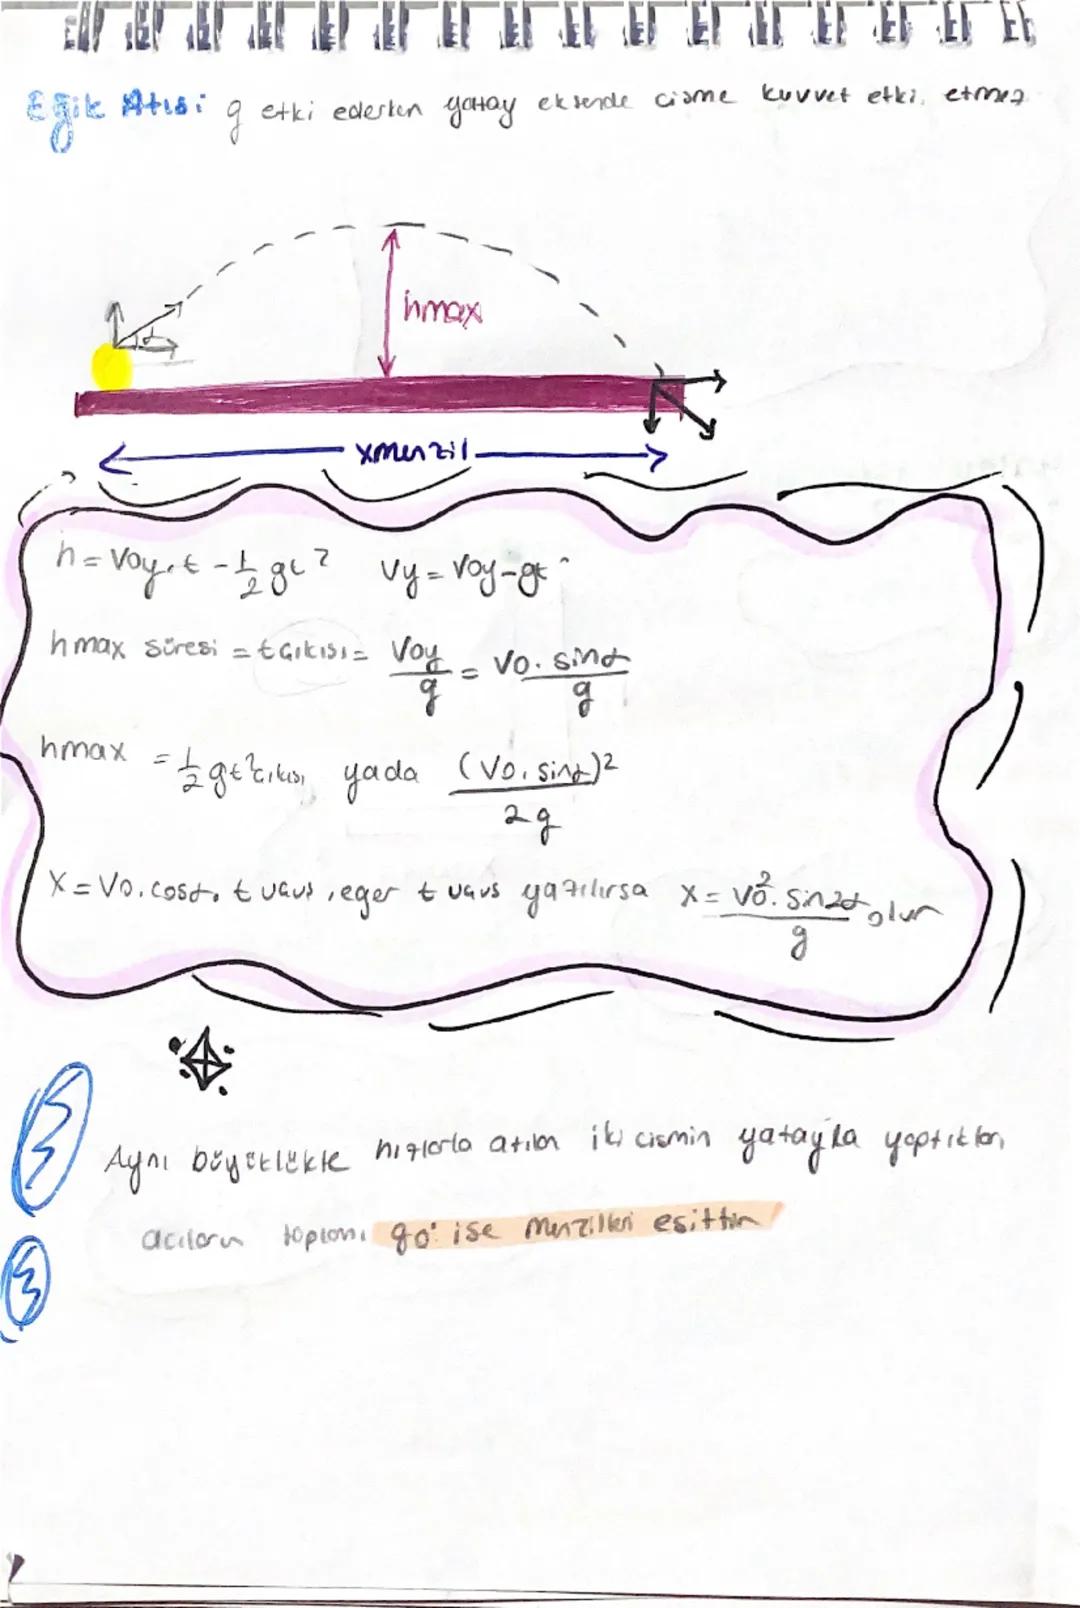 Eğik Atış: g etki ederken yatay eksende cisme kuvvet etki etmez
hmax
α
xmenzil
h = Voy.t - 1/2 gt² Vy = Voy - gt
hmax süresi = tçıkış = Voy/g = Vo.sinα/g
hmax = 1/2 gt²çıkış yada (Vo.sinα)²/2g
X = Vo.cosα.t uçuş, eğer t uçuş yazılırsa X = Vo².sin2α/g olur
Aynı büyüklükte hızlarla atılan iki cismin yatayla yaptıkları
açıların toplamı 90° ise menzilleri eşittir